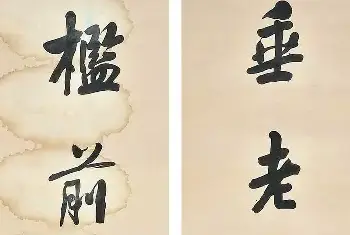 垂老
檻前